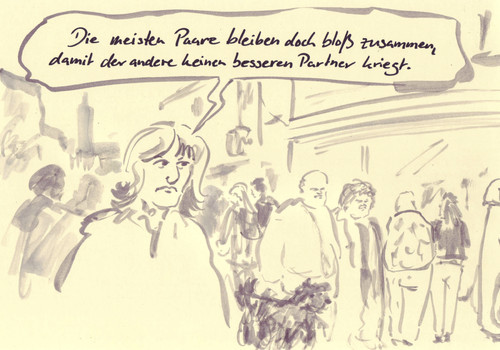 Die meisten Paare bleiben doch bloß zusammen,
damit der andere keinen besseren Partner kriegt.